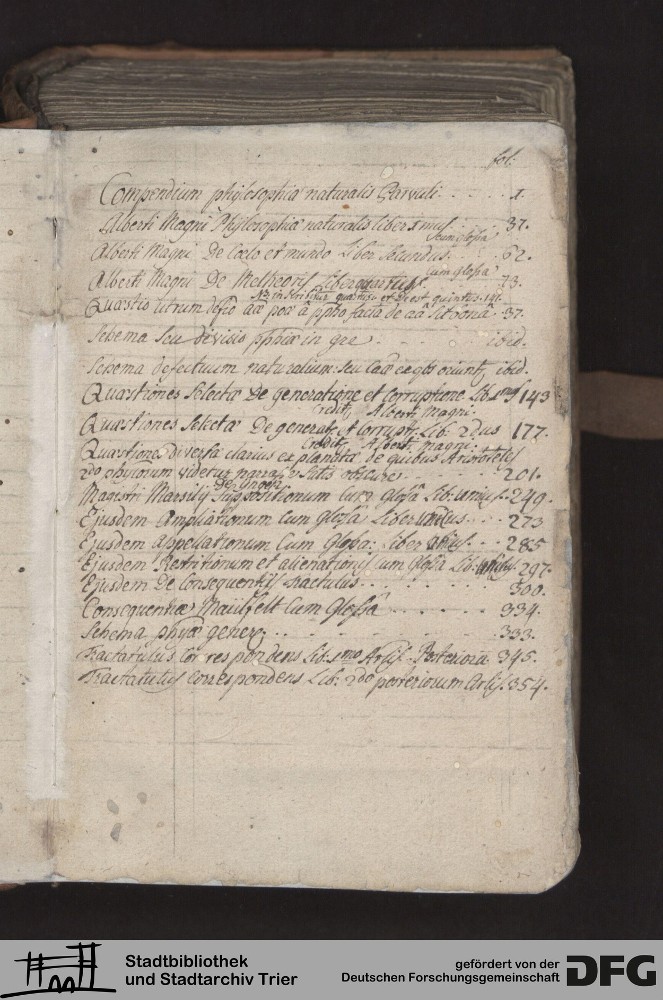 fol:
Compendium phylosophiæ naturalis Parvuli . . . . 1.
Alberti Magni Phylosophiæ naturalis liber 1mus . . . 37.
cum glosâ
Alberti Magni De Coelo et mundo Liber Secundus. . . 62.
cum glosâ
Alberti Magni De Metheoris liber quartus. 73.
Nâ inscribitur quartus et est quintus. 141.
Quæstio utrum 37.
Schema seu divisio in gre . . . ibid.
Schema defectuum naturalium seu ibid.
Quæstiones Selectæ De generatione et Corruptione Lib. 1mus 143
Credit, Alberti Magni.
Quæstiones Selectæ De generat: et Corrupt: Lib. 2dus 177.
Credit, Alberti magni:
Quæstiones diversæ clarius explanatæ de quibus Aristoteles
2do phisicorum videtur satis obscure 201.
De Inghen
Magistri Marsilij Suppositionum cum glosâ Lib: unius. 249.
Ejusdem Ampliationum Cum glosâ Liber unicus . . . 273
Ejusdem Appellationum Cum Glosâ: liber unius . . 285
Ejusdem Restritionum et alienationis cum Glosâ Lib: unius. 297.
Ejusdem De Consequentijs tractulus . . . . . . 300.
Consequentiæ Maulfelt Cum Glosâ . . . . . 334.
Schema . . . . 333.
Tractatulus Correspondens Lib: 1mo Posteriorum 345.
Tractatulus correspondens Lib: 2do posteriorum 354.
Stadtbibliothek
und Stadtarchiv Trier
gefördert von der
Deutschen Forschungsgemeinschaft
DFG